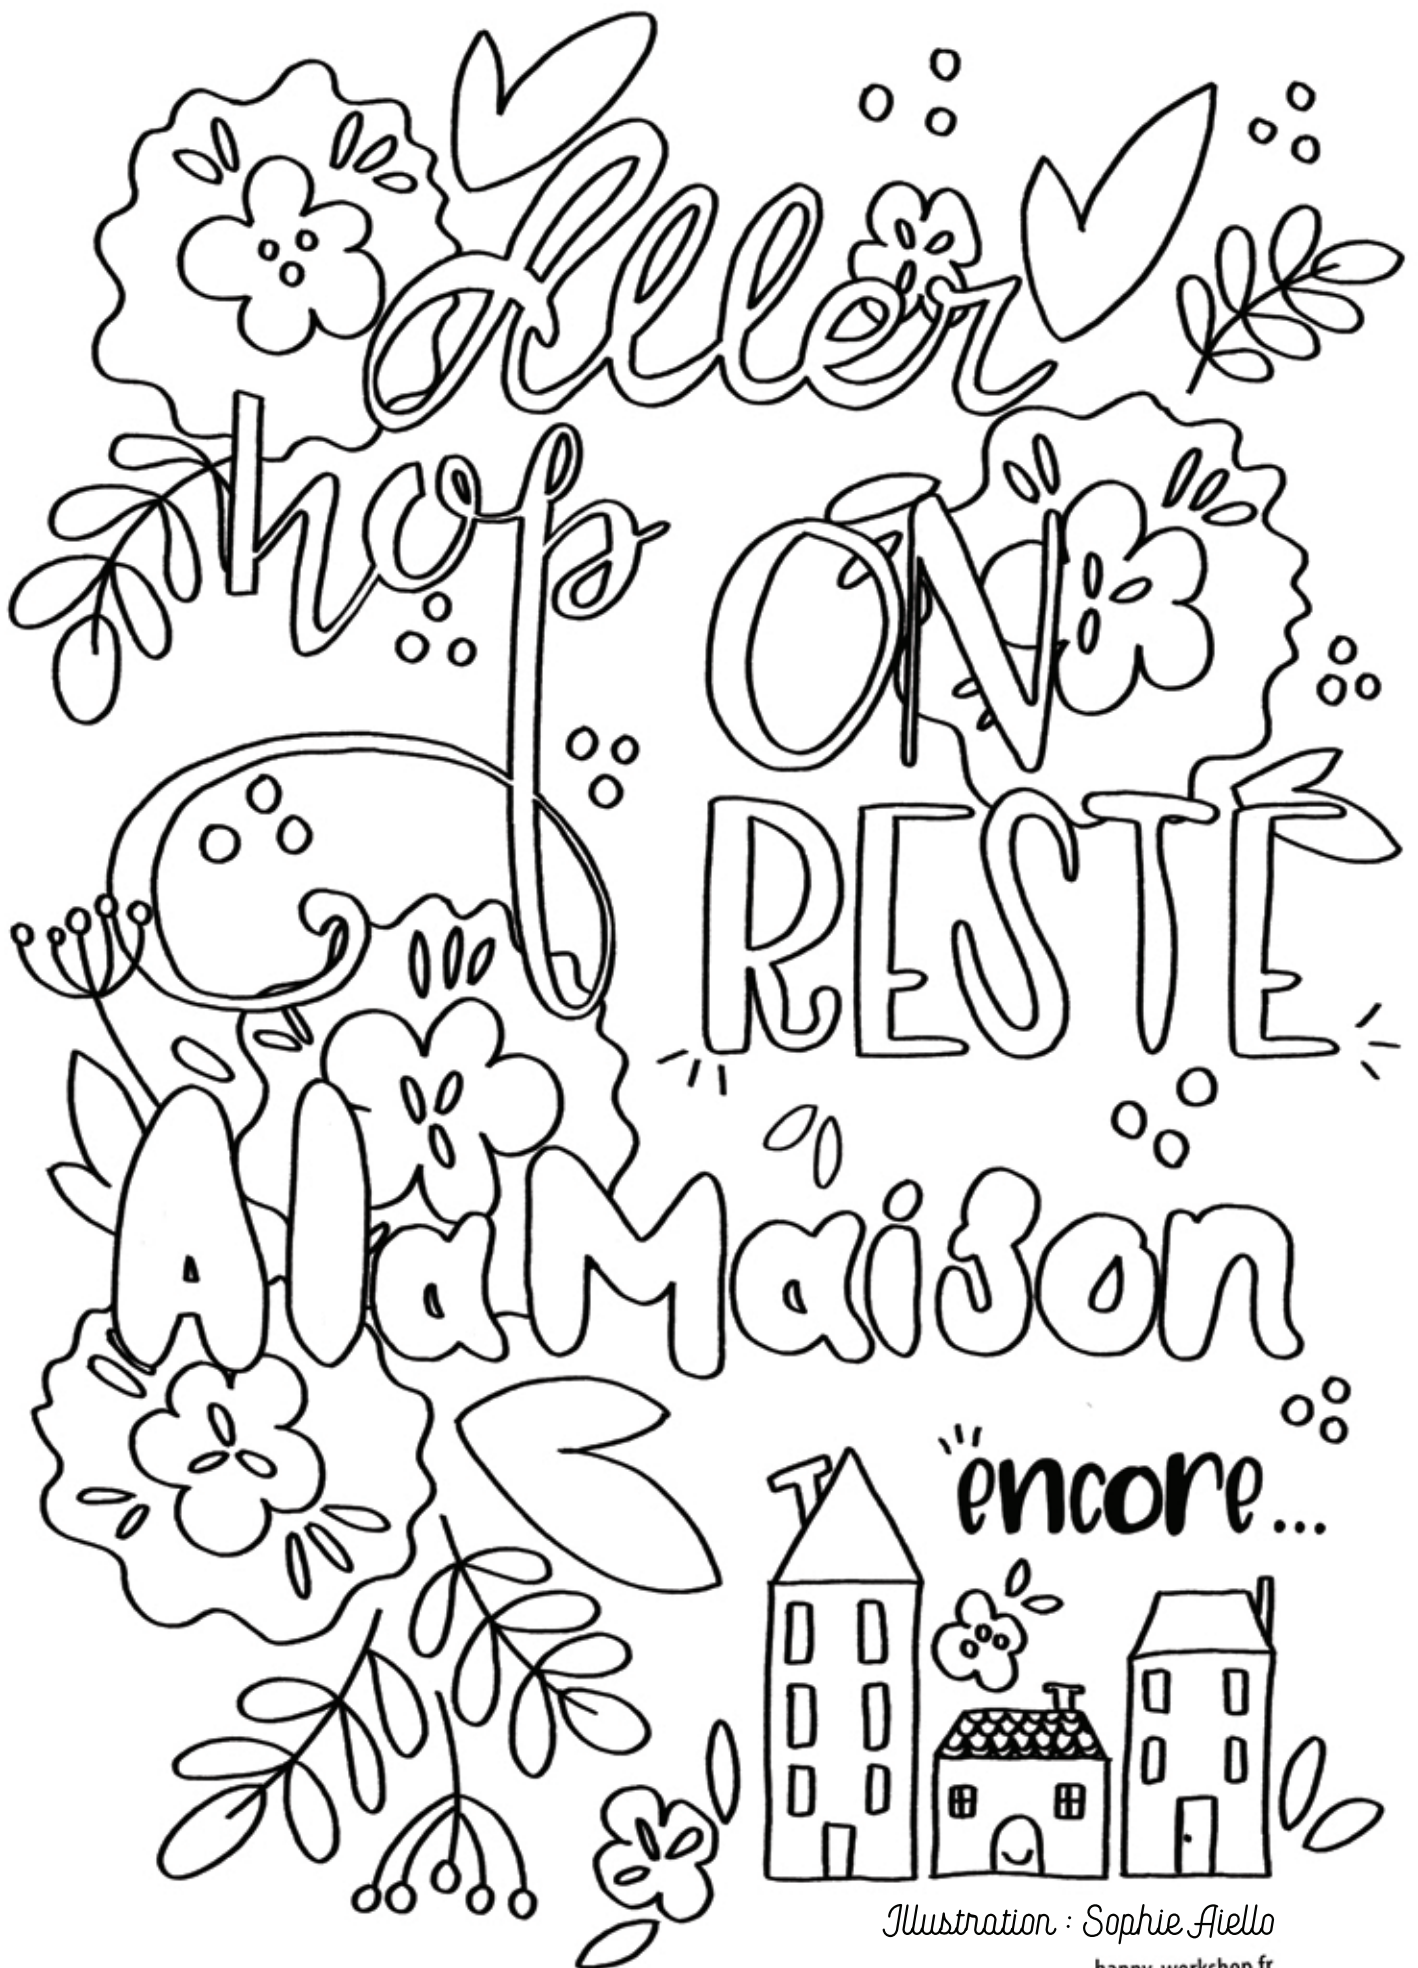 Aller
hop
ON
RESTE
A la Maison
encore...
Illustration : Sophie Aiello
happy-workshop.fr